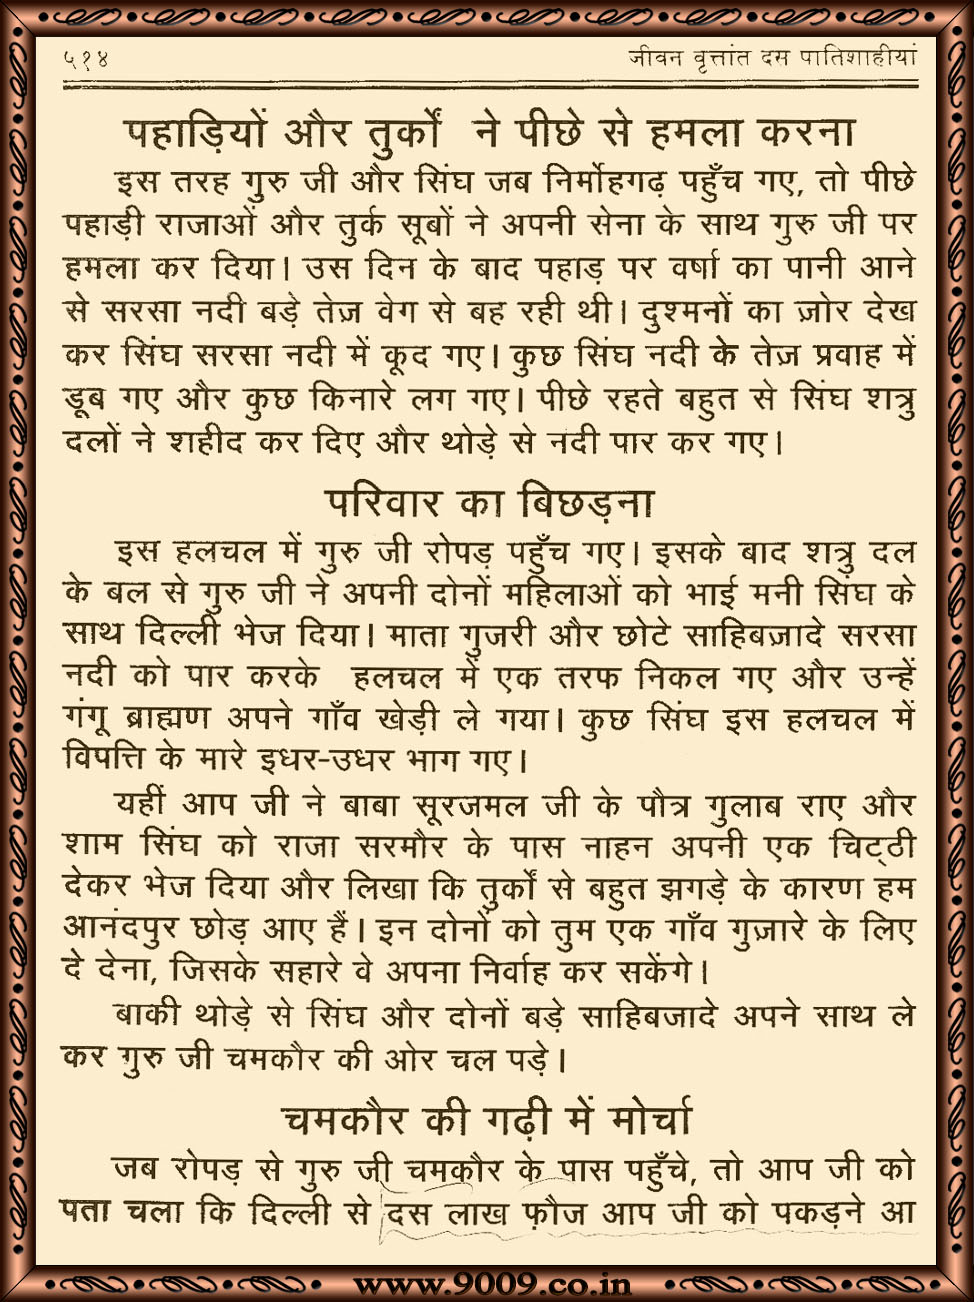 ५१४ जीवन वृत्तांत दस पातिशाहीयां
पहाड़ियों और तुर्कों ने पीछे से हमला करना
इस तरह गुरु जी और सिंघ जब निर्मोहगढ़ पहुँच गए, तो पीछे
पहाड़ी राजाओं और तुर्क सूबों ने अपनी सेना के साथ गुरु जी पर
हमला कर दिया। उस दिन के बाद पहाड़ पर वर्षा का पानी आने
से सरसा नदी बड़े तेज़ वेग से बह रही थी। दुश्मनों का ज़ोर देख
कर सिंघ सरसा नदी में कूद गए। कुछ सिंघ नदी के तेज़ प्रवाह में
डूब गए और कुछ किनारे लग गए। पीछे रहते बहुत से सिंघ शत्रु
दलों ने शहीद कर दिए और थोड़े से नदी पार कर गए।
परिवार का बिछड़ना
इस हलचल में गुरु जी रोपड़ पहुँच गए। इसके बाद शत्रु दल
के बल से गुरु जी ने अपनी दोनों महिलाओं को भाई मनी सिंघ के
साथ दिल्ली भेज दिया। माता गुजरी और छोटे साहिबज़ादे सरसा
नदी को पार करके हलचल में एक तरफ निकल गए और उन्हें
गंगू ब्राह्मण अपने गाँव खेड़ी ले गया। कुछ सिंघ इस हलचल में
विपत्ति के मारे इधर-उधर भाग गए।
यहीं आप जी ने बाबा सूरजमल जी के पौत्र गुलाब राए और
शाम सिंघ को राजा सरमौर के पास नाहन अपनी एक चिट्ठी
देकर भेज दिया और लिखा कि तुर्कों से बहुत झगड़े के कारण हम
आनंदपुर छोड़ आए हैं। इन दोनों को तुम एक गाँव गुज़ारे के लिए
दे देना, जिसके सहारे वे अपना निर्वाह कर सकेंगे।
बाकी थोड़े से सिंघ और दोनों बड़े साहिबजादे अपने साथ ले
कर गुरु जी चमकौर की ओर चल पड़े।
चमकौर की गढ़ी में मोर्चा
जब रोपड़ से गुरु जी चमकौर के पास पहुँचे, तो आप जी को
पता चला कि दिल्ली से दस लाख फ़ौज आप जी को पकड़ने आ
www.9009.co.in